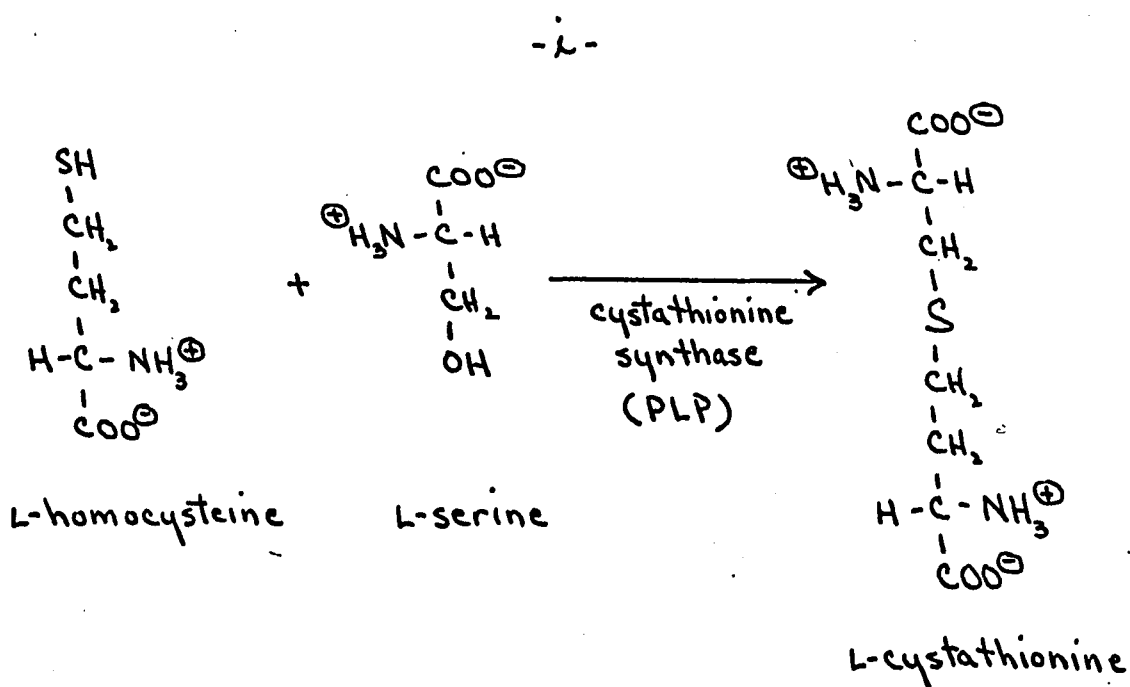 -i-
SH
CH₂
CH₂
H-C-NH₃⊕
COO⊖
L-homocysteine
+
COO⊖
⊕H₃N-C-H
CH₂
OH
L-serine
cystathionine
synthase
(PLP)
COO⊖
⊕H₃N-C-H
CH₂
S
CH₂
CH₂
H-C-NH₃⊕
COO⊖
L-cystathionine